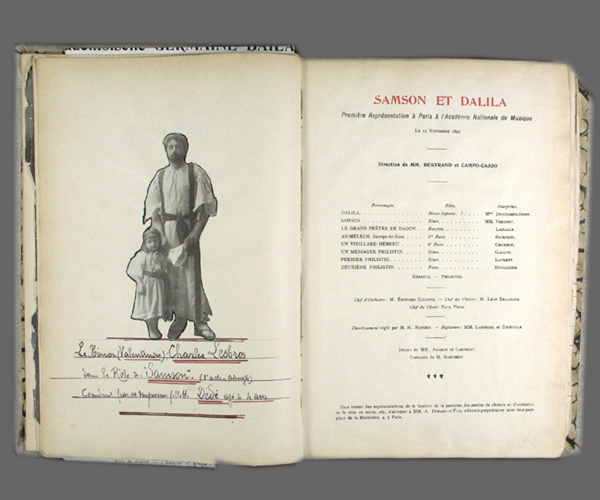 GERMAINE BAILA
Le Ténor (Valentinois) Charles Lesbros
dans le Rôle de "Samson" (2e acte)
Conduit par sa Dédé âgé de 4 ans
SAMSON ET DALILA
Première Représentation à Paris à l'Académie Nationale de Musique
Le 23 Novembre 1892
Direction de MM. BERTRAND et CAMPO-CASSO
Personnages. Rôles. Interprètes.
DALILA Mezzo-Soprano Mme DESCHAMPS-JEHIN.
SAMSON Ténor. MM. VERGNET.
LE GRAND PRÊTRE DE DAGON Baryton. LASSALLE.
ABIMÉLECH, Satrape de Gaza 1re Basse FOURNETS.
UN VIEILLARD HÉBREU 2e Basse CHAMBON.
UN MESSAGER PHILISTIN Ténor. GALLOIS.
PREMIER PHILISTIN Ténor. LAURENT.
DEUXIÈME PHILISTIN Basse. DOUAILLIER.
HÉBREUX. — PHILISTINS.
Chef d'Orchestre : M. ÉDOUARD COLONNE. — Chef des Chœurs : M. LÉON DELAHAYE
Chef du Chant : PAUL VIDAL
Divertissement réglé par M. H. HANSEN. — Régisseurs : MM. LAPISSIDA et COLLEUILLE
Décors de MM. AMABLE et CARPEZAT
Costumes de M. BIANCHINI
Pour traiter des représentations, de la location de la partition, des parties de chœurs et d'orchestre,
de la mise en scène, etc., s'adresser à MM. A. DURAND et FILS, éditeurs-propriétaires pour tous pays
place de la Madeleine, 4, à Paris.